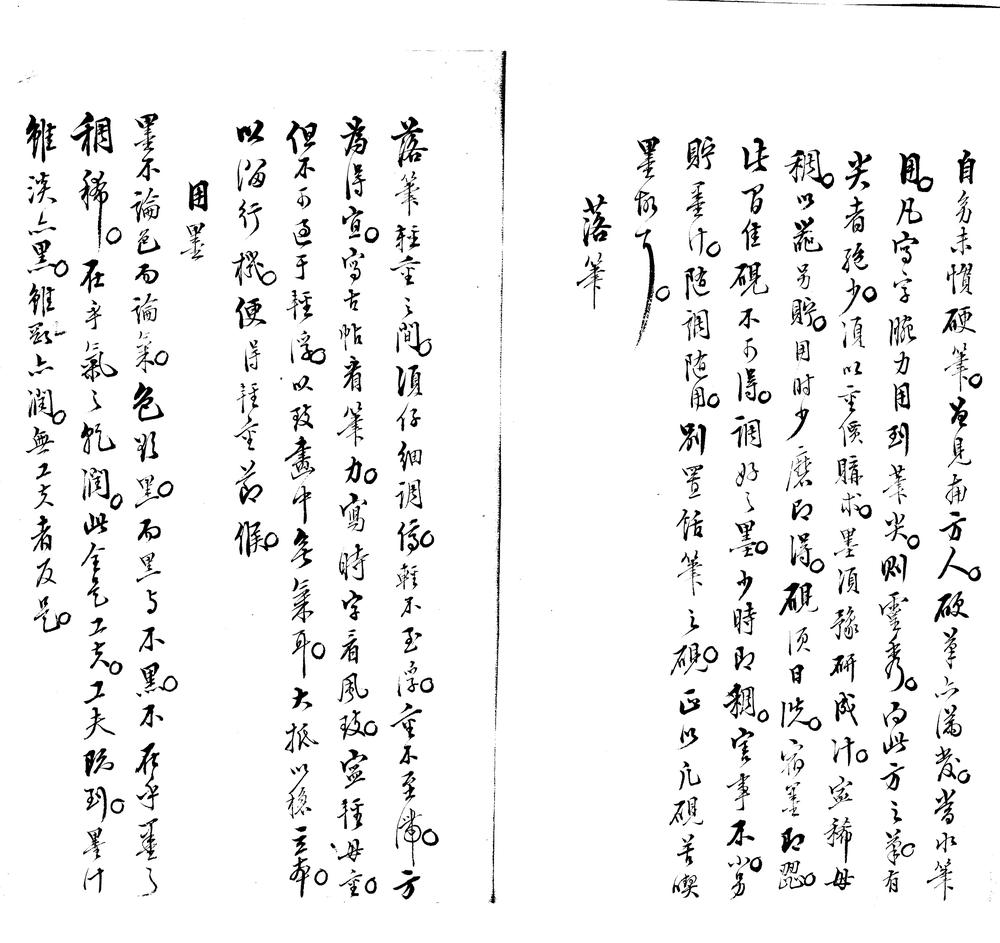 自多未慣硬筆。曾見南方人。硬筆亦滿發。當水筆
用。凡寫字腕力用到筆尖。則靈秀。而此方之筆。有
尖者絕少。須以重價購求。墨須豫研成汁。寧稀毋
稠。以器另貯。用時少磨即得。硯須日洗。宿墨即澀。
佳硯不可得。調好之墨。少時即稠。害事不小。另
貯墨汁。隨調隨用。別置舐筆之硯。正以凡硯苦喫
墨故耳。
落筆
落筆輕重之間。須仔細調停。輕不至浮。重不至滯。方
為得宜。寫古帖看筆力。寫時字看風致。寧輕毋重。
但不可過于輕浮。以致畫中無氣耳。大抵以穩立本。
以溜行機。便得輕重節候。
用墨
墨不論色而論氣。色能黑。而黑与不黑。不在乎墨之
稠稀。在乎氣之乾潤。此全是工夫。工夫既到。墨汁
雖淡亦黑。雖點亦潤。無工夫者反是。